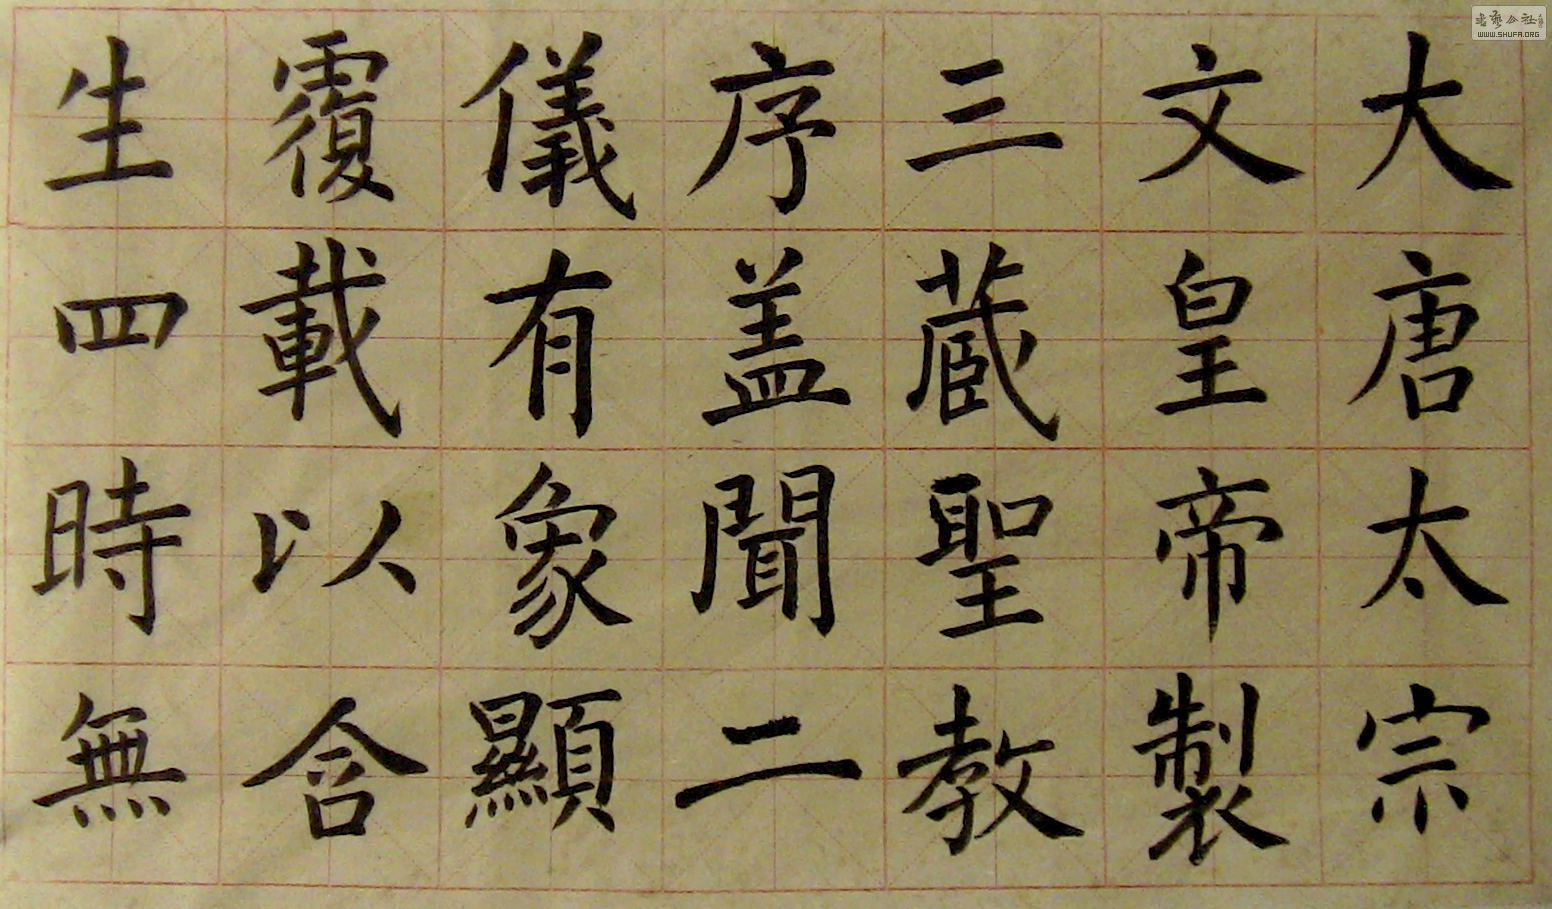 大唐太宗
文皇帝製
三蔵聖教
序盖聞二
儀有象顯
覆載以含
生四時無
书艺公社
WWW.SHUFA.ORG